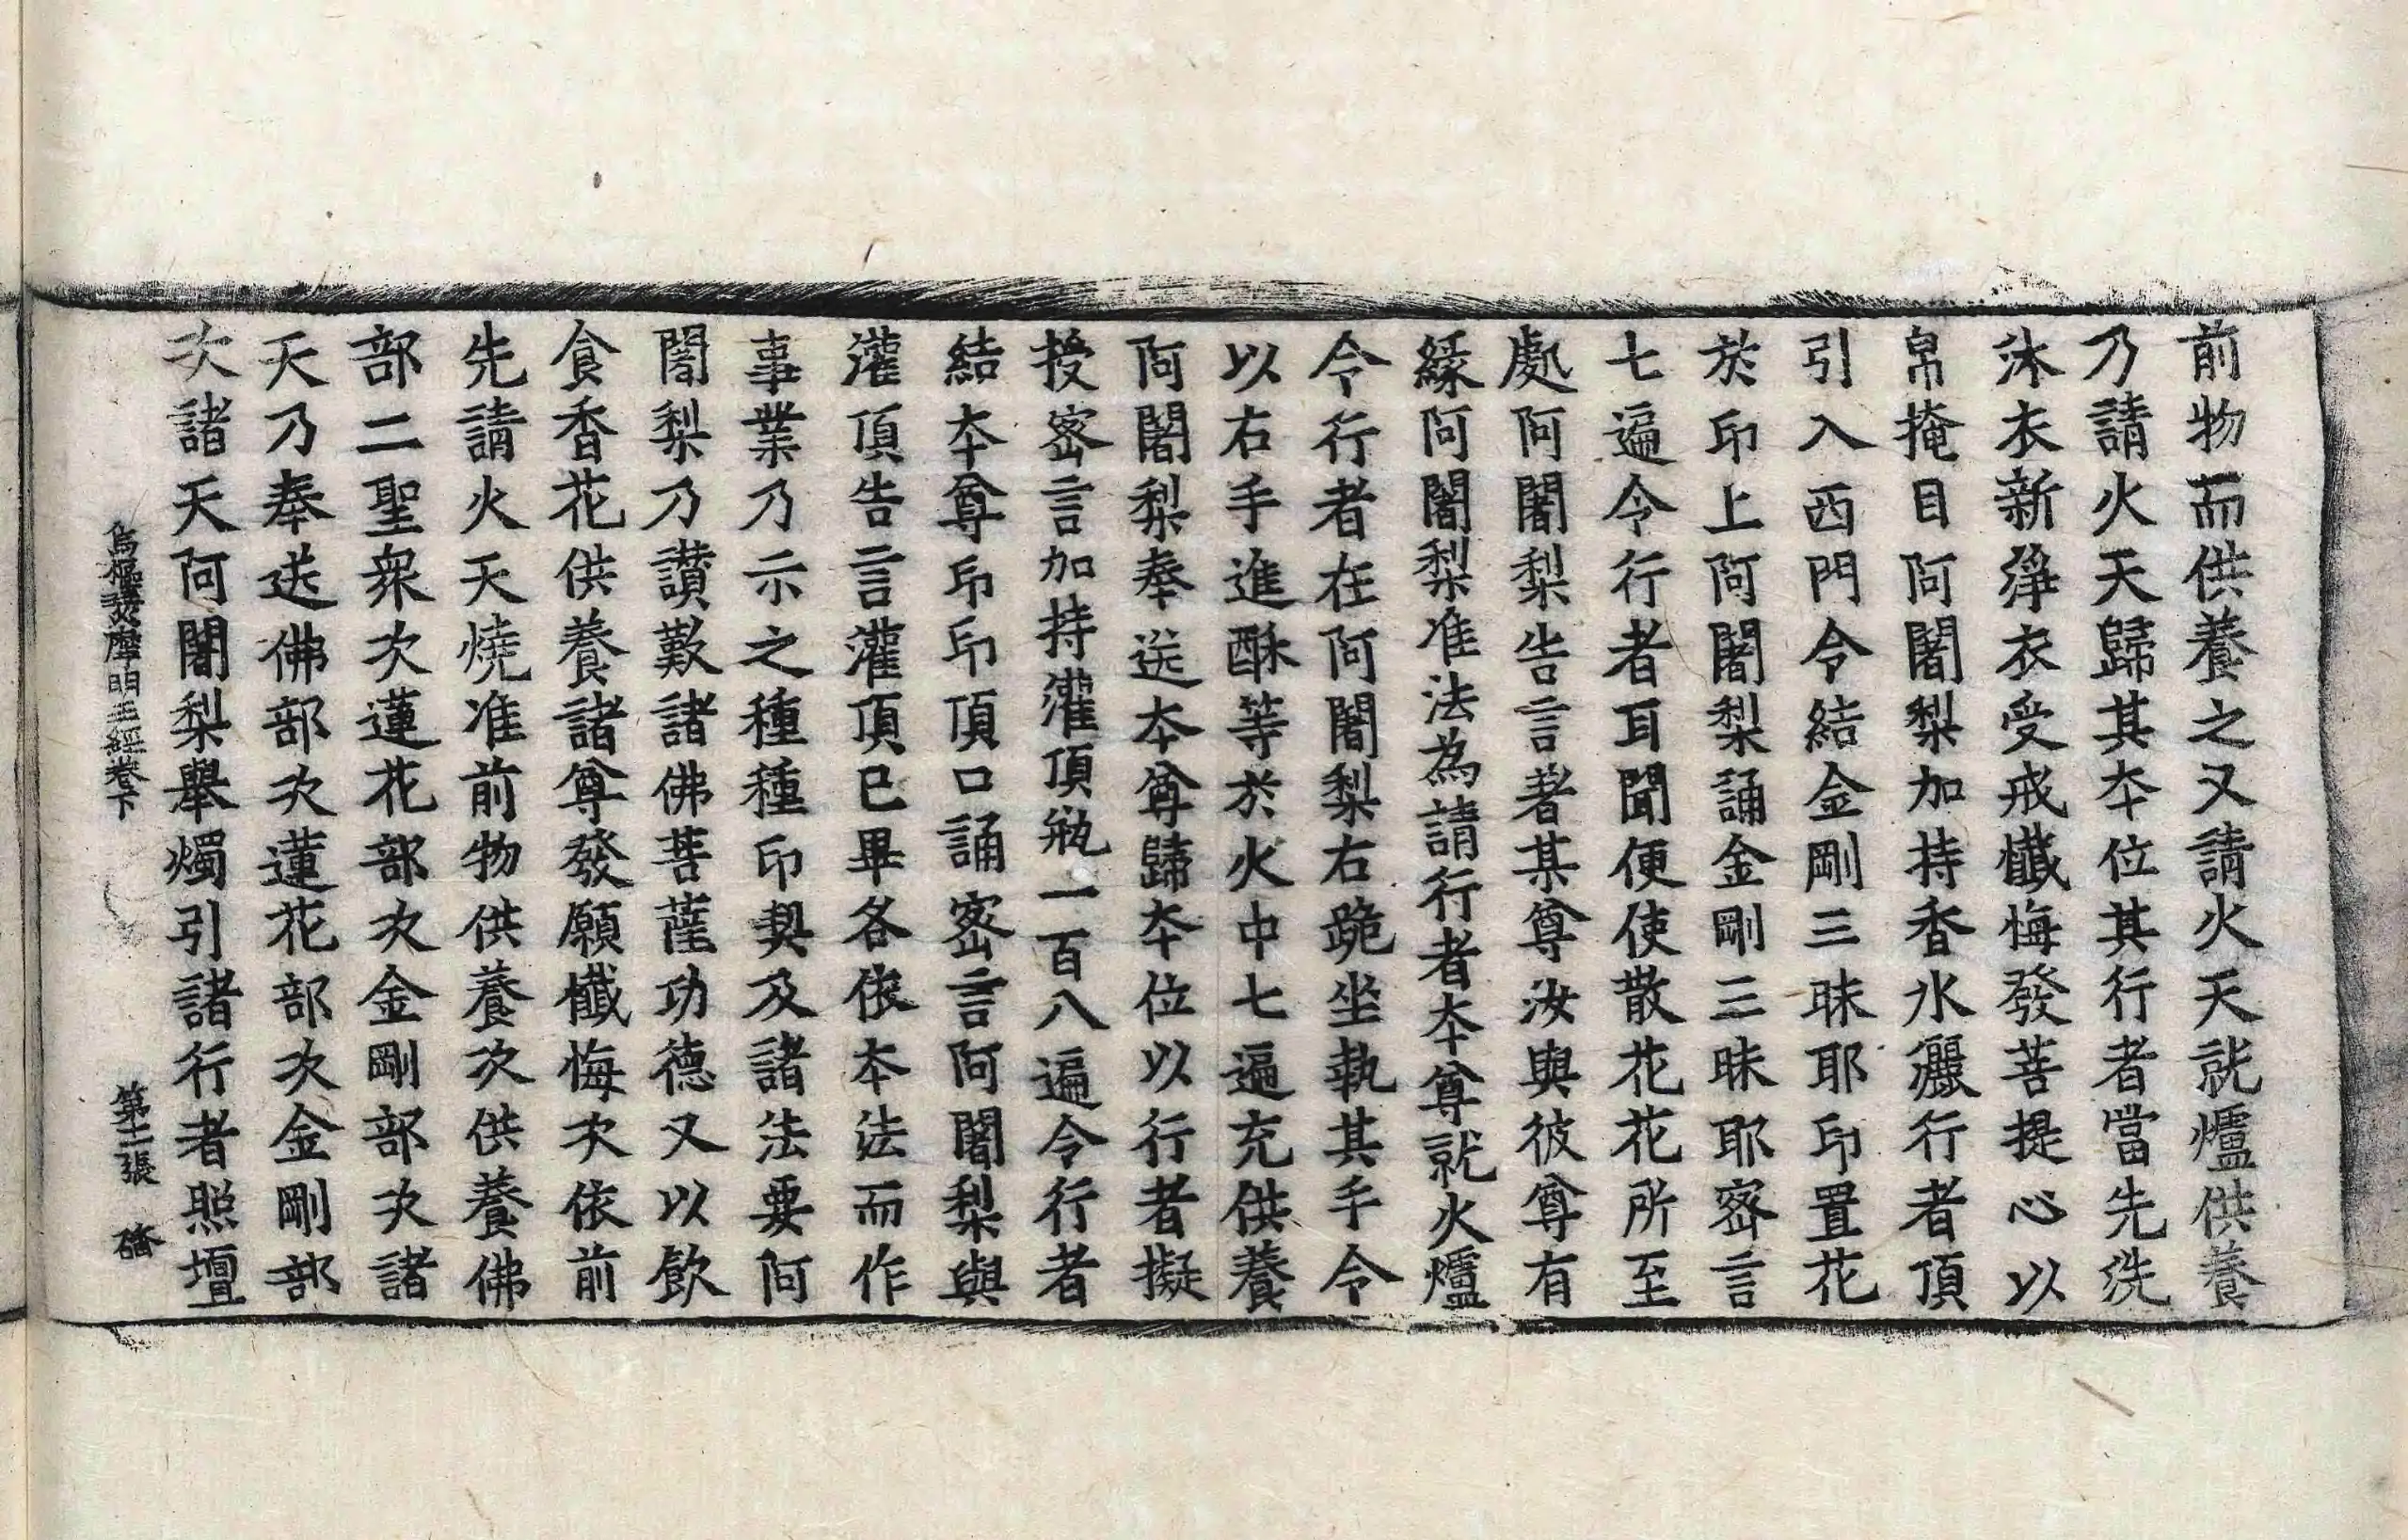 前物而供養之又請火天就爐供養
乃請火天歸其本位其行者當先洗
沐衣新淨衣受戒懺悔發菩提心以
帛掩目阿闍梨加持香水灑行者頂
引入西門令結金剛三昧耶印置花
於印上阿闍梨誦金剛三昧耶密言
七遍令行者耳聞便使散花花所至
處阿闍梨告言著某尊汝與彼尊有
緣阿闍梨准法為請行者本尊就火爐
令行者在阿闍梨右跪坐執其手令
以右手進酥等於火中七遍充供養
阿闍梨奉送本尊歸本位以行者擬
授密言加持灌頂瓶一百八遍令行者
結本尊印印頂口誦密言阿闍梨與
灌頂告言灌頂已畢各依本法而作
事業乃示之種種印契及諸法要阿
闍梨乃讃歎諸佛菩薩功德又以飲
食香花供養諸尊發願懺悔次依前
先請火天燒准前物供養次供養佛
部二聖衆次蓮花部次金剛部次諸
天乃奉送佛部次蓮花部次金剛部
次諸天阿闍梨舉燭引諸行者照壇
烏樞瑟摩明王經卷下　第二張